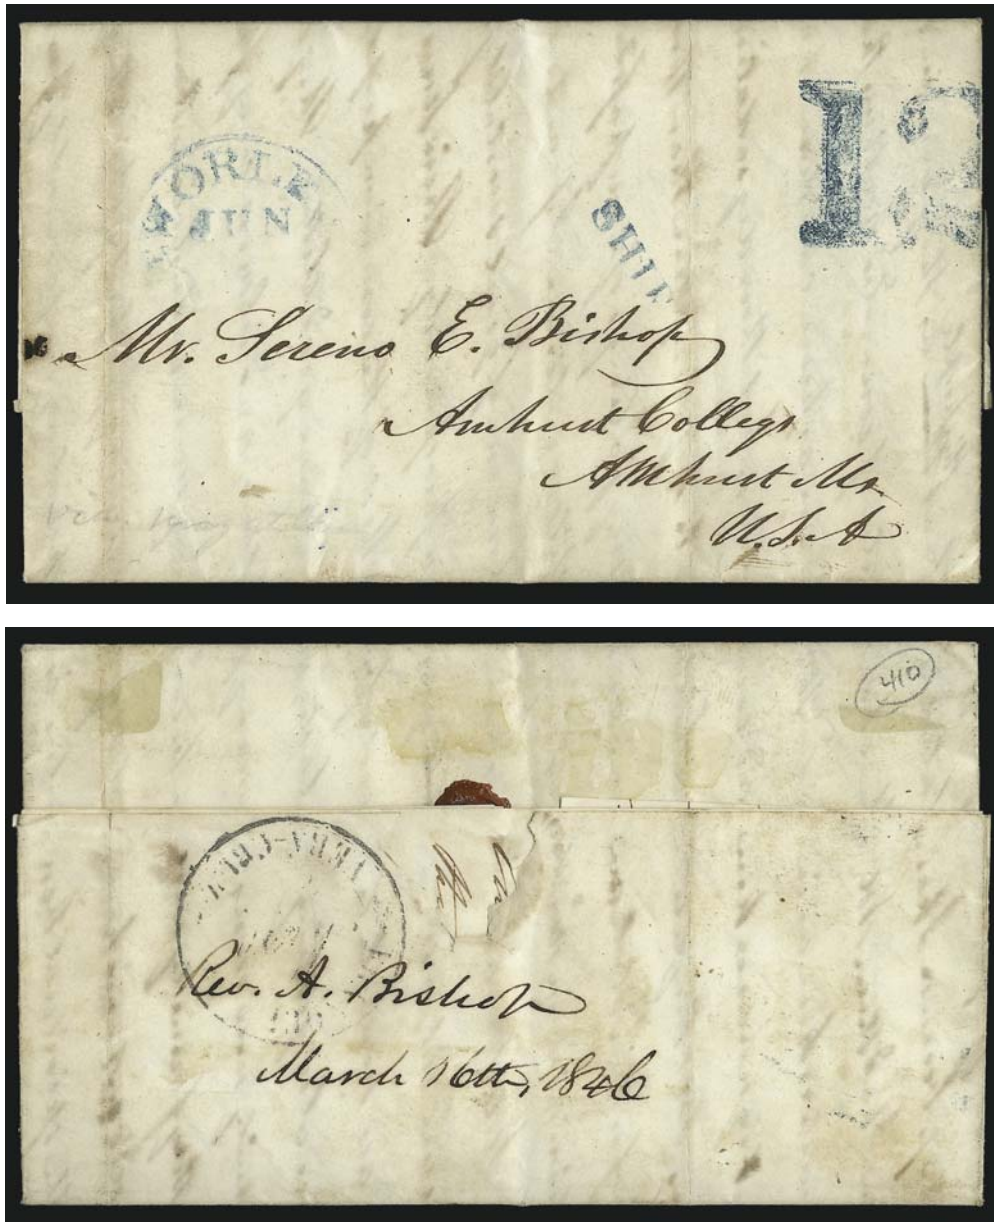 ORLE
JUN
SHIP
12
Mr. Sereno E. Bishop
Amhurst College
Amhurst Ms.
U.S.A
410
VERA-CRUZ
Rev. A. Bishop
March 16th, 1846